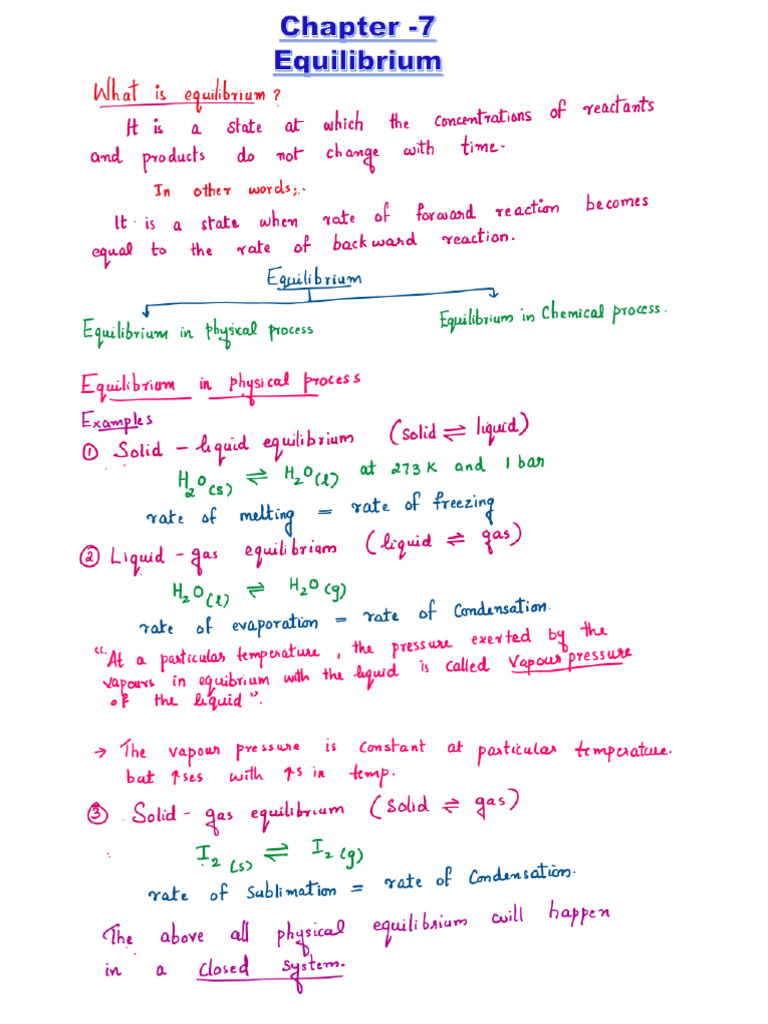 Chapter -7
Equilibrium
What is equilibrium?
It is a state at which the concentrations of reactants
and products do not change with time.
In other words;.
It is a state when rate of forward reaction becomes
equal to the rate of backward reaction.
Equilibrium
Equilibrium in physical process
Equilibrium in Chemical process.
Equilibrium in physical process
Examples
① Solid - liquid equilibrium (solid ⇌ liquid)
H₂O(s) ⇌ H₂O(l) at 273 K and 1 bar
rate of melting = rate of freezing
② Liquid - gas equilibrium (liquid ⇌ gas)
H₂O(l) ⇌ H₂O(g)
rate of evaporation = rate of Condensation.
"At a particular temperature, the pressure exerted by the
vapours in equibrium with the liquid is called Vapour pressure
of the liquid".
→ The vapour pressure is constant at particular temperature.
but ↑ses with ↑s in temp.
③ Solid - gas equilibrium (solid ⇌ gas)
I₂(s) ⇌ I₂(g)
rate of Sublimation = rate of Condensation.
The above all physical equilibrium will happen
in a closed system.